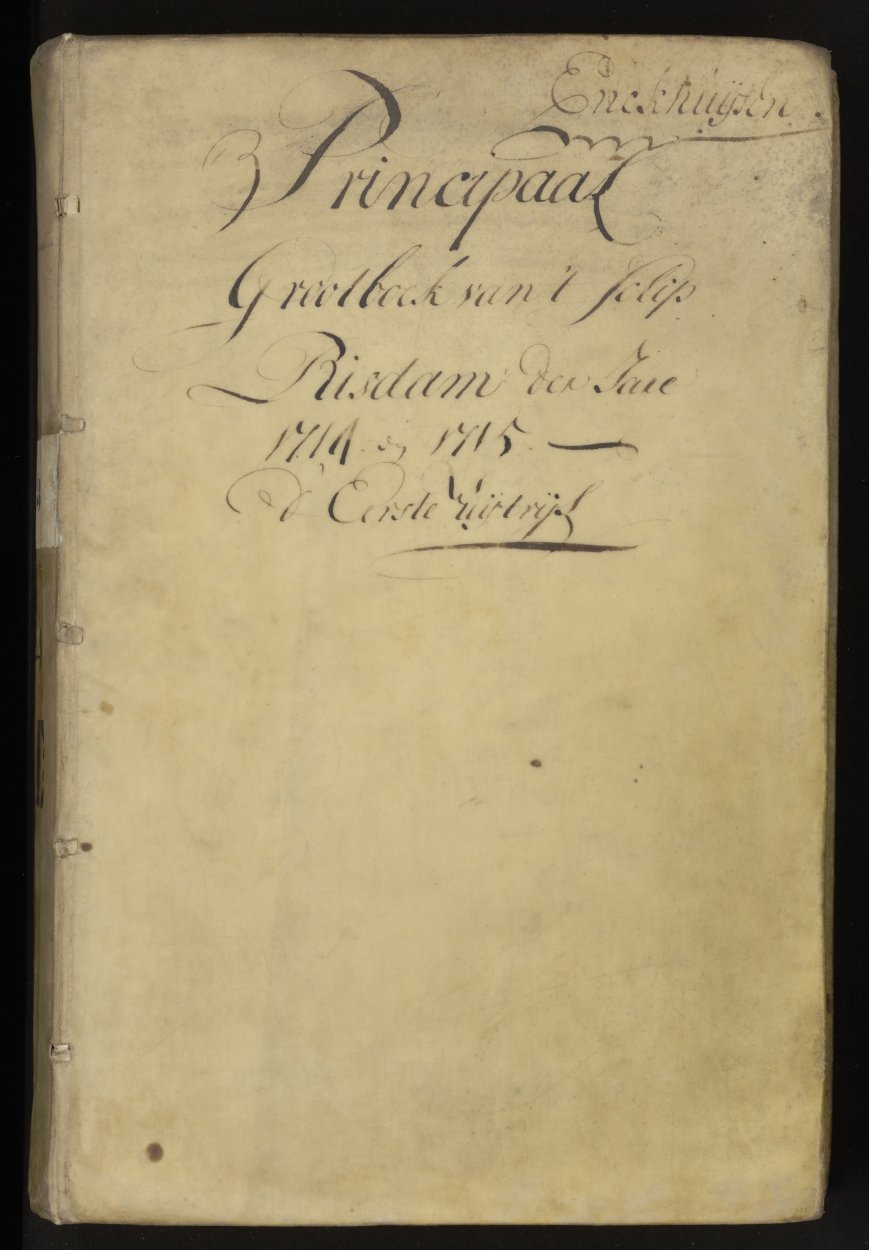 Enckhuÿsen
Principaal
Grootboek van't Schip
Risdam der Jare
1714 en 1715
d' Eerste Uÿtrijs